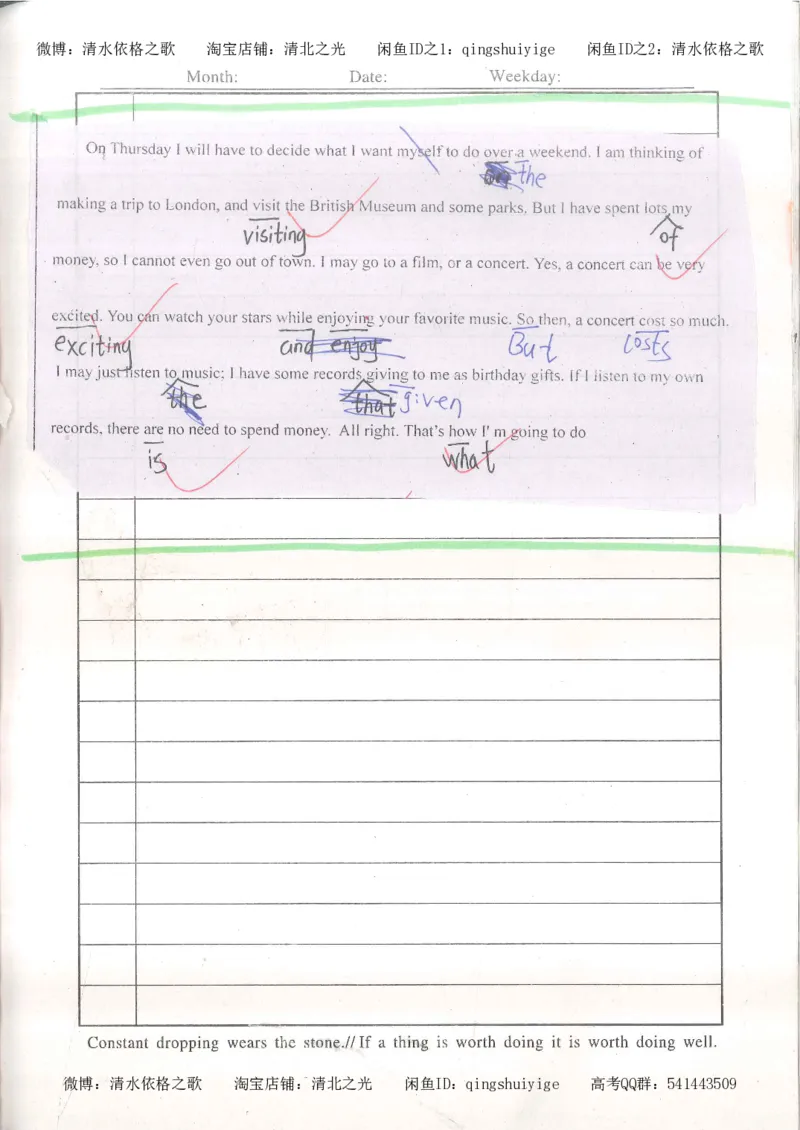 微博：清水依格之歌 淘宝店铺：清北之光 闲鱼ID之1：qingshuiyige 闲鱼ID之2：清水依格之歌
Month: Date: Weekday:
On Thursday I will have to decide what I want myself to do over a weekend. I am thinking of
the
making a trip to London, and visit the British Museum and some parks. But I have spent lots my
visiting of
money, so I cannot even go out of town. I may go to a film, or a concert. Yes, a concert can be very
excited. You can watch your stars while enjoying your favorite music. So then, a concert cost so much.
exciting and enjoy But costs
I may just listen to music; I have some records giving to me as birthday gifts. If I listen to my own
the that given
records, there are no need to spend money. All right. That's how I' m going to do
is what
Constant dropping wears the stone.// If a thing is worth doing it is worth doing well.
微博：清水依格之歌 淘宝店铺：清北之光 闲鱼ID：qingshuiyige 高考QQ群：541443509